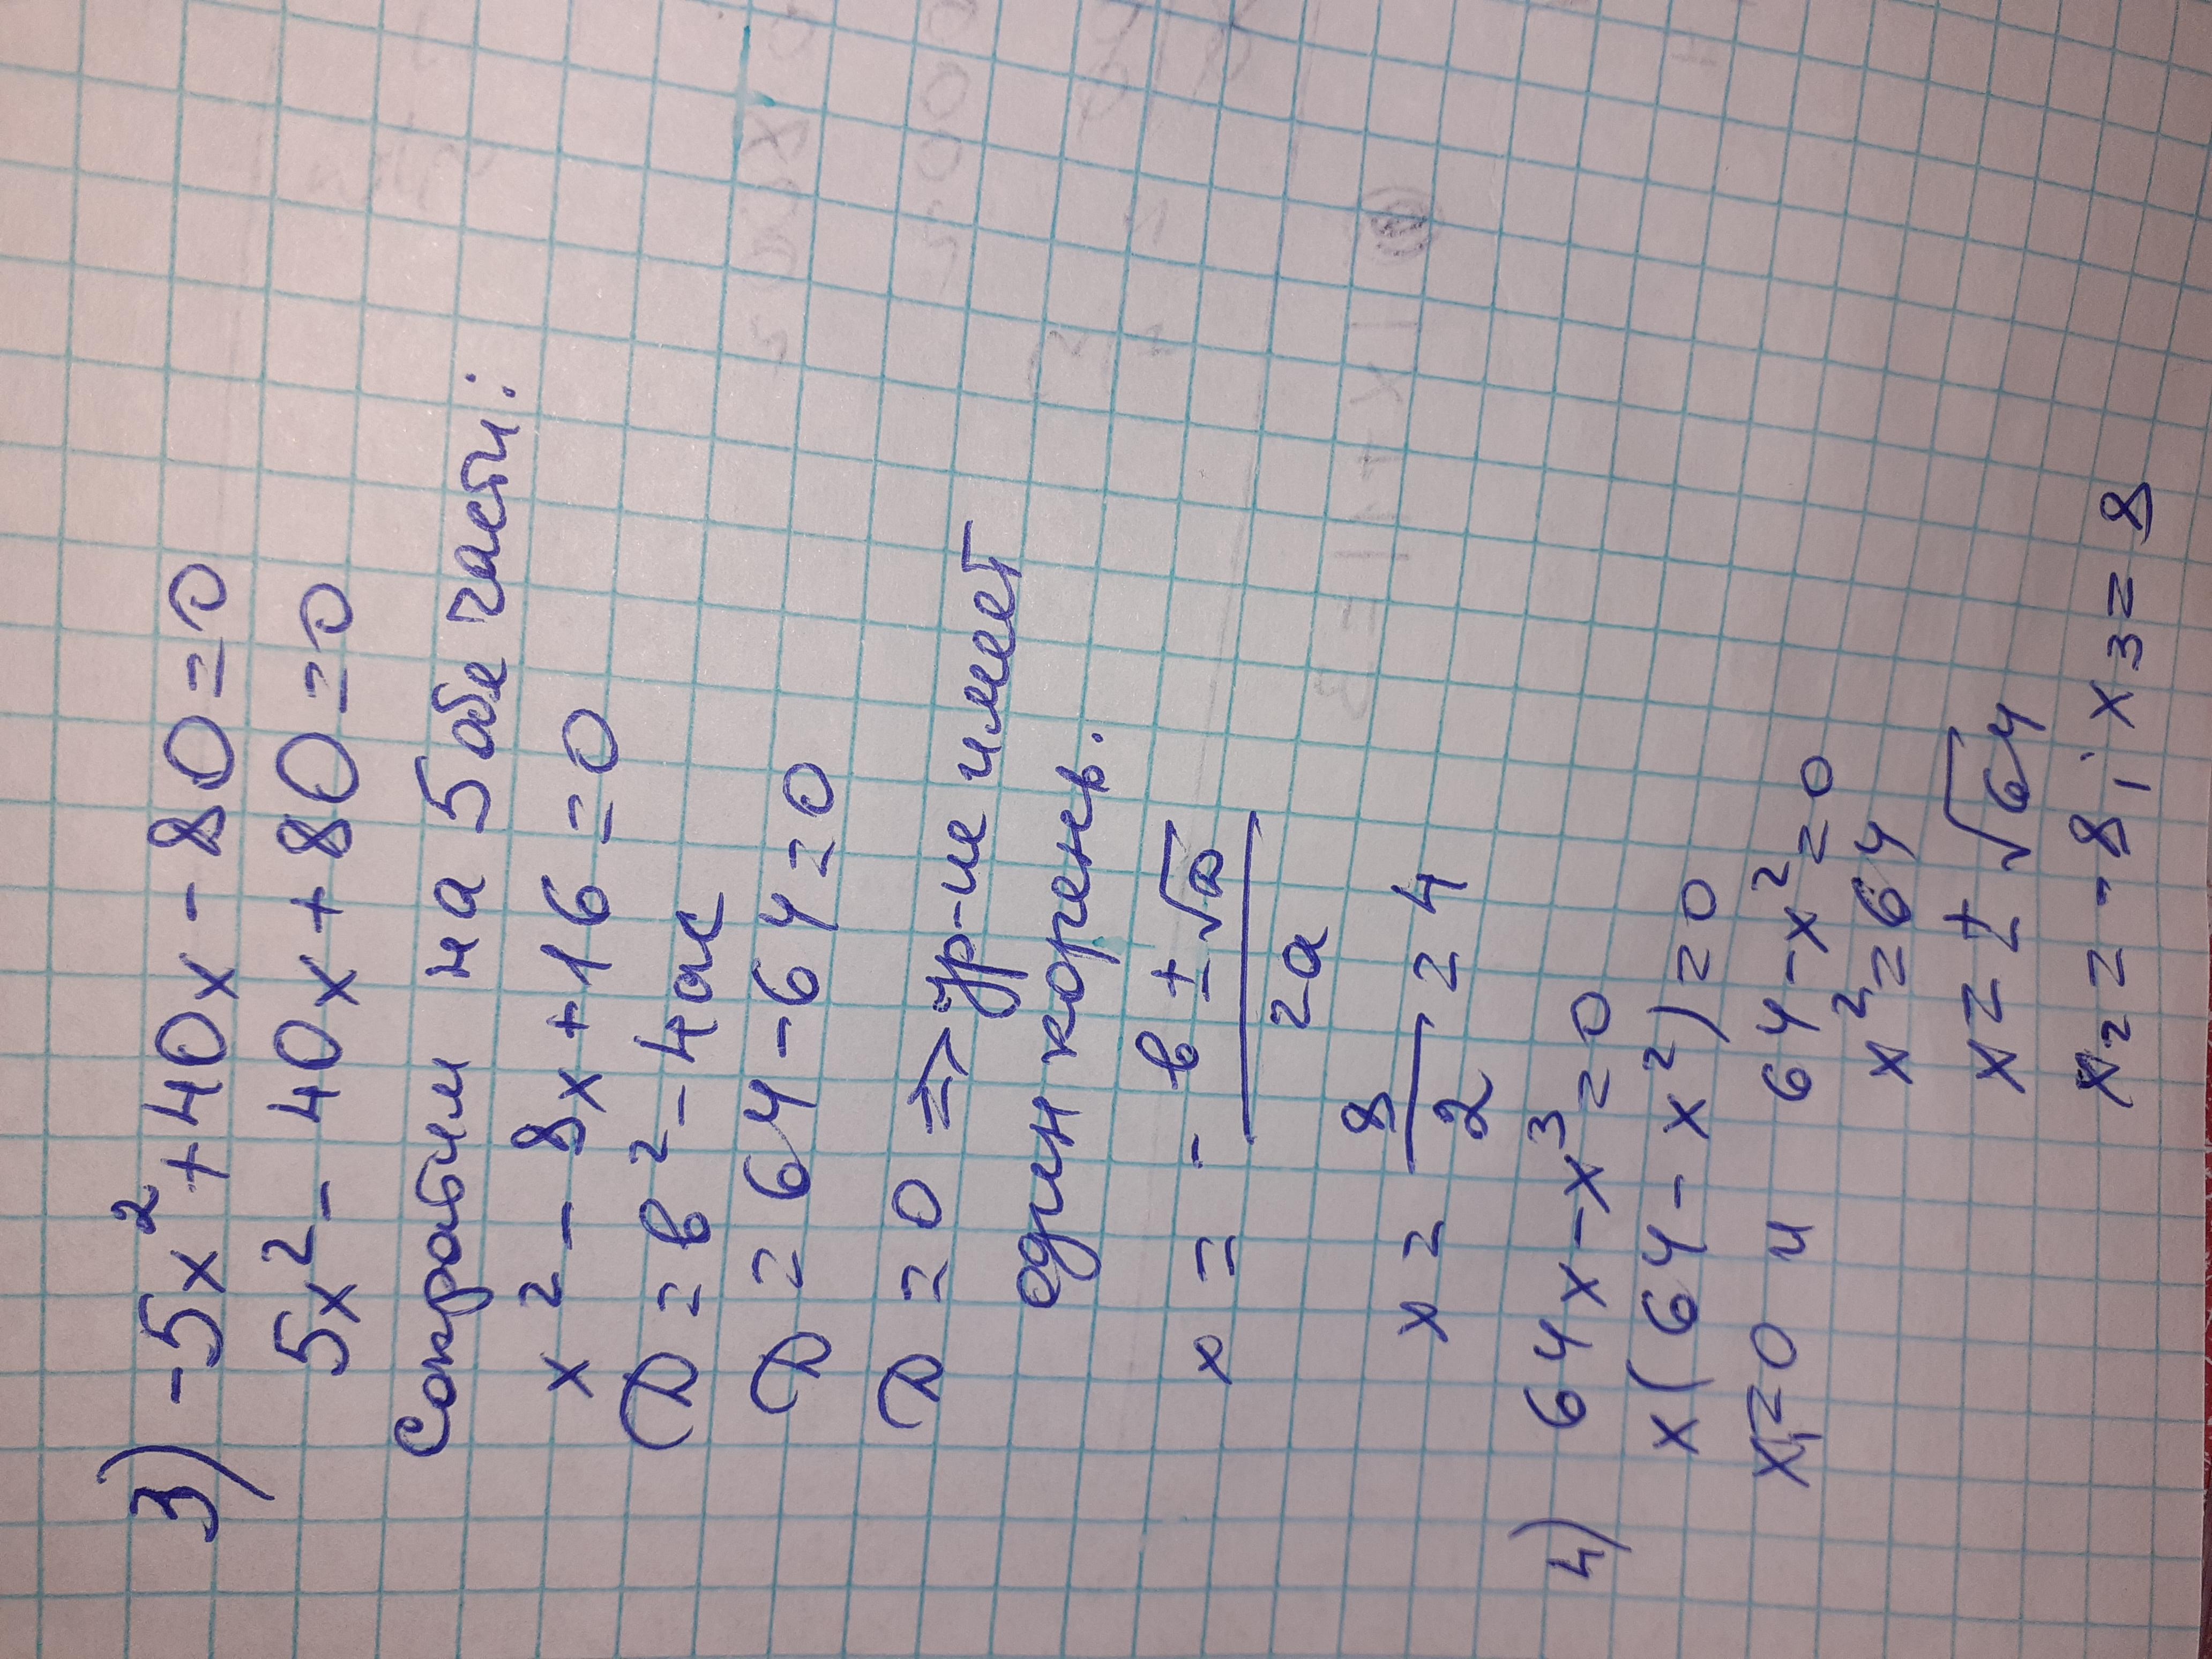 3) -5x²+40x-80=0
5x²-40x+80=0
Сократим на 5 обе части:
x²-8x+16=0
D=b²-4ac
D=64-64=0
D=0 => ур-ие имеет
один корень.
x = -b±√D / 2a
x = 8/2 = 4
4) 64x-x³=0
x(64-x²)=0
x₁=0 и 64-x²=0
x²=64
x=±√64
x₂=-8; x₃=8